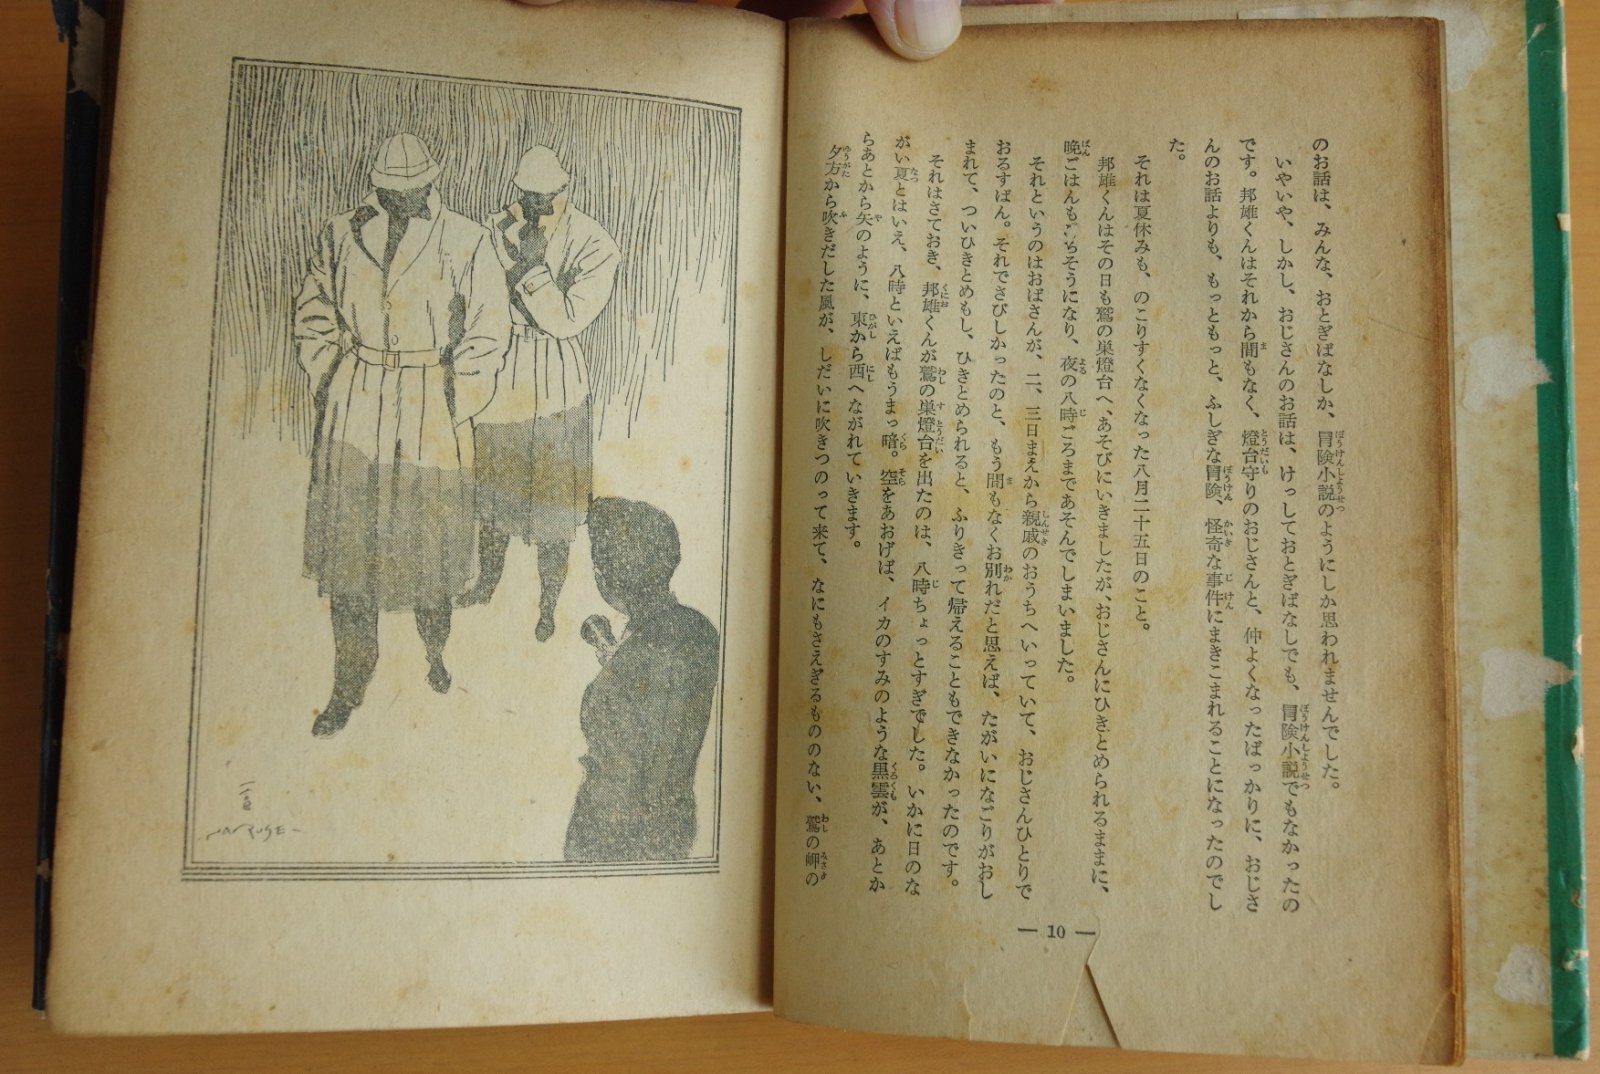 のお話は、みんな、おとぎばなしか、冒険小説のようにしか思われませんでした。
いやいや、しかし、おじさんのお話は、けっしておとぎばなしでも、冒険小説でもなかったの
です。邦雄くんはそれから間もなく、燈台守りのおじさんと、仲よくなったばっかりに、おじさ
んのお話よりも、もっともっと、ふしぎな冒険、怪奇な事件にまきこまれることになったのでし
た。
それは夏休みも、のこりすくなくなった八月二十五日のこと。
邦雄くんはその日も鷲の巣燈台へ、あそびにいきましたが、おじさんにひきとめられるままに、
晩ごはんもごちそうになり、夜の八時ごろまであそんでしまいました。
それというのはおばさんが、二、三日まえから親戚のおうちへいっていて、おじさんひとりで
おるすばん。それでさびしかったのと、もう間もなくお別れだと思えば、たがいになごりがおし
まれて、ついひきとめもし、ひきとめられると、ふりきって帰えることもできなかったのです。
それはさておき、邦雄くんが鷲の巣燈台を出たのは、八時ちょっとすぎでした。いかに日のな
がい夏とはいえ、八時といえばもうまっ暗。空をあおげば、イカのすみのような黒雲が、あとか
らあとから矢のように、東から西へながれていきます。
夕方から吹きだした風が、しだいに吹きつのって来て、なにもさえぎるもののない、鷲の岬の
— 10 —
NARUSE